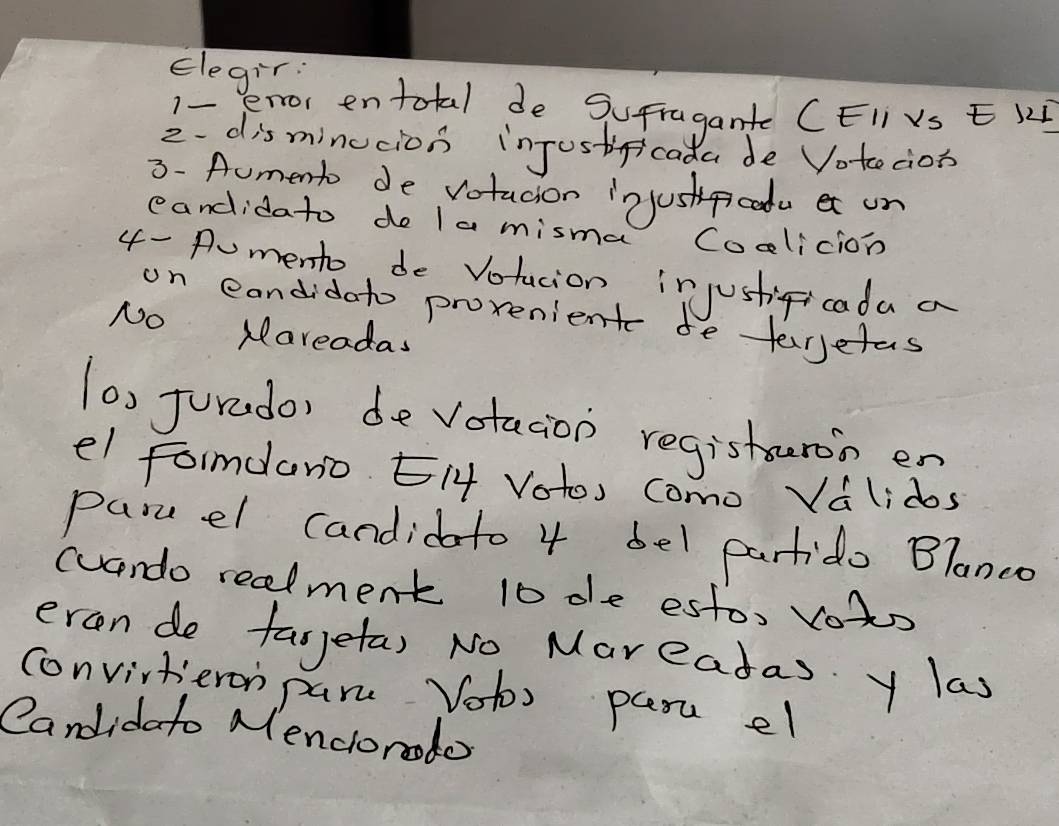 Elegir:
1- error en total de Sufragante (E11 vs E 24
2- disminución injustificada de Votacion
3- Aumento de votacion injustificada a un
candidato de la misma Coalición
4- Aumento de Votacion injustificada a
un candidato proveniente de tarjetas
No Marcadas
los jurados de votación registrarón en
el Formulario E14 Votos como Válidos
para el candidato 4 del partido Blanco
cuando realmente 10 de estos votos
eran de tarjetas No Marcadas. y las
convirtierón para Votos para el
Candidato Mencionado